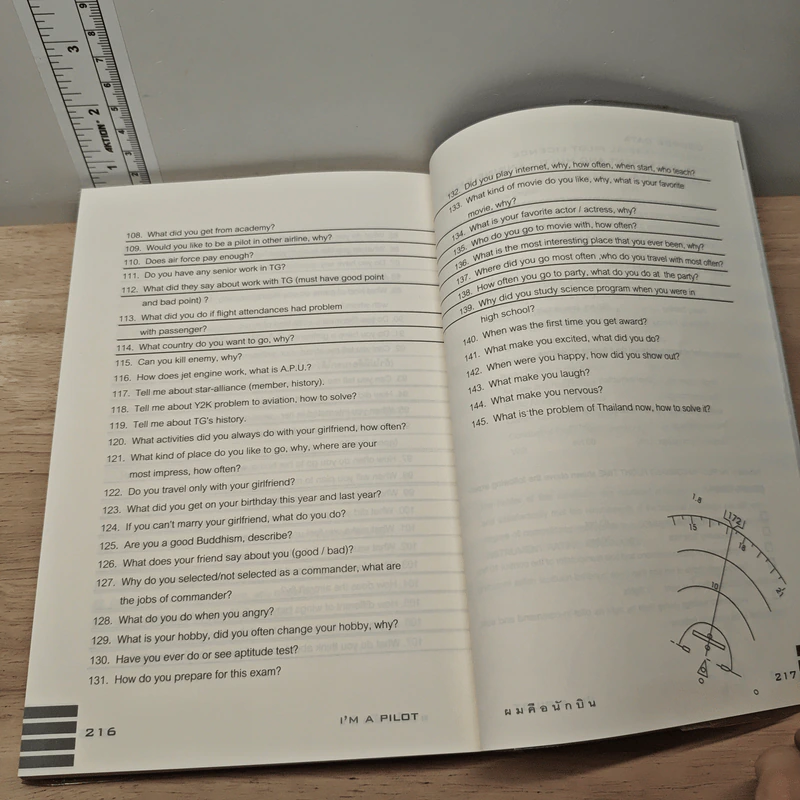 108. What did you get from academy?
109. Would you like to be a pilot in other airline, why?
110. Does air force pay enough?
111. Do you have any senior work in TG?
112. What did they say about work with TG (must have good point
and bad point) ?
113. What did you do if flight attendances had problem
with passenger?
114. What country do you want to go, why?
115. Can you kill enemy, why?
116. How does jet engine work, what is A.P.U.?
117. Tell me about star-alliance (member, history).
118. Tell me about Y2K problem to aviation, how to solve?
119. Tell me about TG's history.
120. What activities did you always do with your girlfriend, how often?
121. What kind of place do you like to go, why, where are your
most impress, how often?
122. Do you travel only with your girlfriend?
123. What did you get on your birthday this year and last year?
124. If you can't marry your girlfriend, what do you do?
125. Are you a good Buddhism, describe?
126. What does your friend say about you (good / bad)?
127. Why do you selected/not selected as a commander, what are
the jobs of commander?
128. What do you do when you angry?
129. What is your hobby, did you often change your hobby, why?
130. Have you ever do or see aptitude test?
131. How do you prepare for this exam?
216
I'M A PILOT
132. Did you play internet, why, how often, when start, who teach?
133. What kind of movie do you like, why, what is your favorite
movie, why?
134. What is your favorite actor / actress, why?
135. Who do you go to movie with, how often?
136. What is the most interesting place that you ever been, why?
137. Where did you go most often ,who do you travel with most often?
138. How often you go to party, what do you do at the party?
139. Why did you study science program when you were in
high school?
140. When was the first time you get award?
141. What make you excited, what did you do?
142. When were you happy, how did you show out?
143. What make you laugh?
144. What make you nervous?
145. What is the problem of Thailand now, how to solve it?
1.8
172
15
18
21
10
ผมคือนักบิน
217
AKTION
3
2